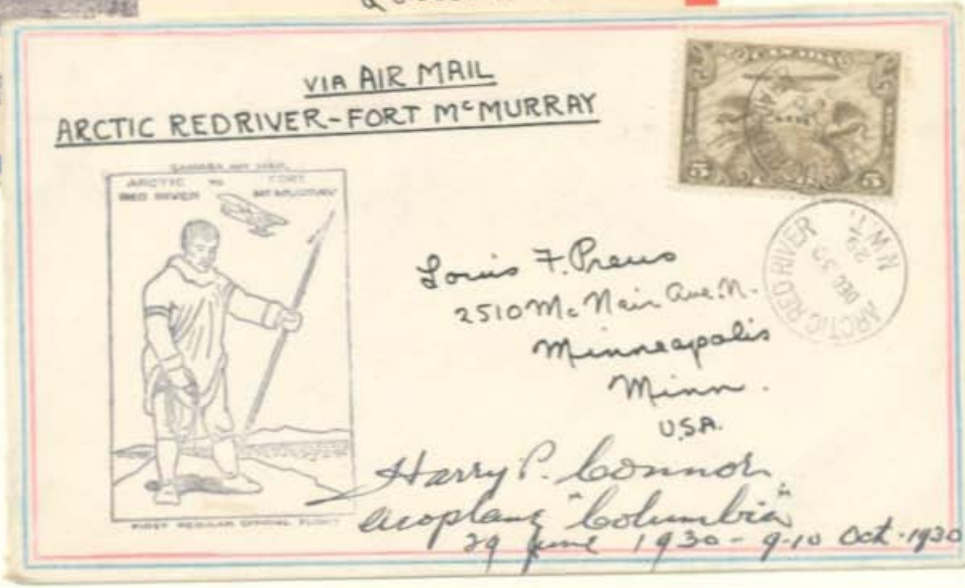 VIA AIR MAIL
ARCTIC REDRIVER-FORT McMURRAY
CANADA
5 5
CANADA AIR MAIL
ARCTIC TO FORT
RED RIVER McMURRAY
FIRST REGULAR OFFICIAL FLIGHT
ARCTIC RED RIVER
N.W.T.
29
DEC 30
Louis F. Preus
2510 Mc Nair Ave. N.
Minneapolis
Minn.
U.S.A.
Harry P. Connor
aeroplane "Columbia"
29 June 1930 - 9-10 Oct. 1930